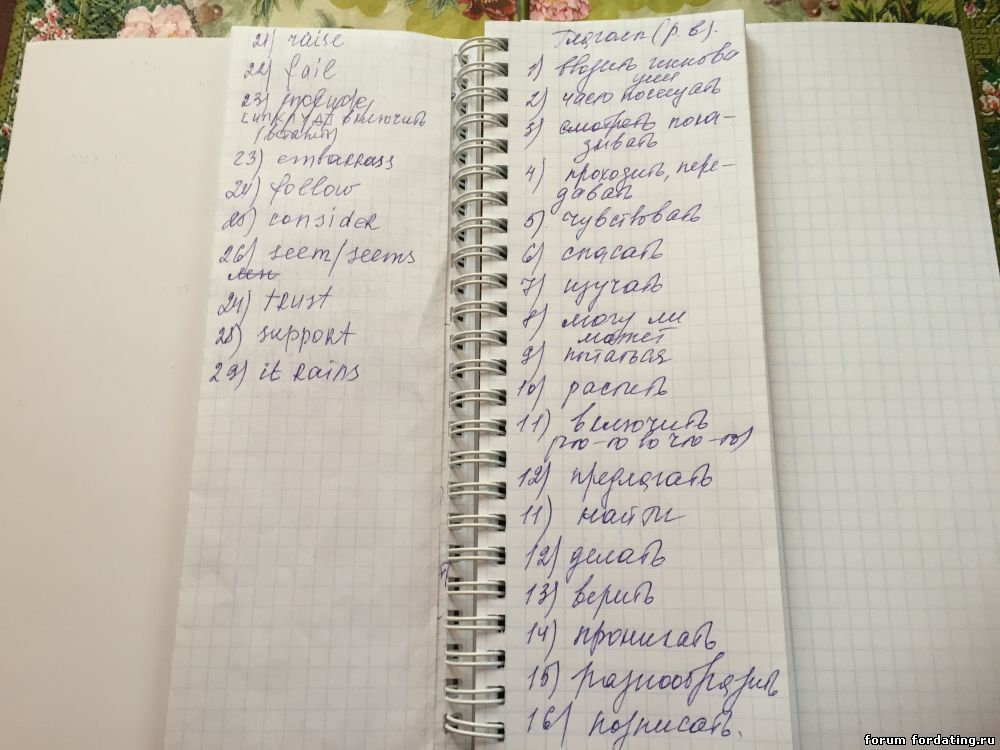 21) raise
22) fail
23)
включить
(встать)
23) embarrass
24) follow
25) consider
26) seem/seems
27) trust
28) support
29) it rains
Глаголы (р. в).
1) вводить
2) часто посещать
3) смотреть пока-
зывать
4) проходить, пере-
давать
5) чувствовать
6) спасать
7) изучать
8) могу ли
может
9) пытаться
10) растить
11) включить
(что-то во что-то)
12) предлагать
11) найти
12) делать
13) верить
14) проникать
15) разнообразить
16) подписать.
forum fordating.ru